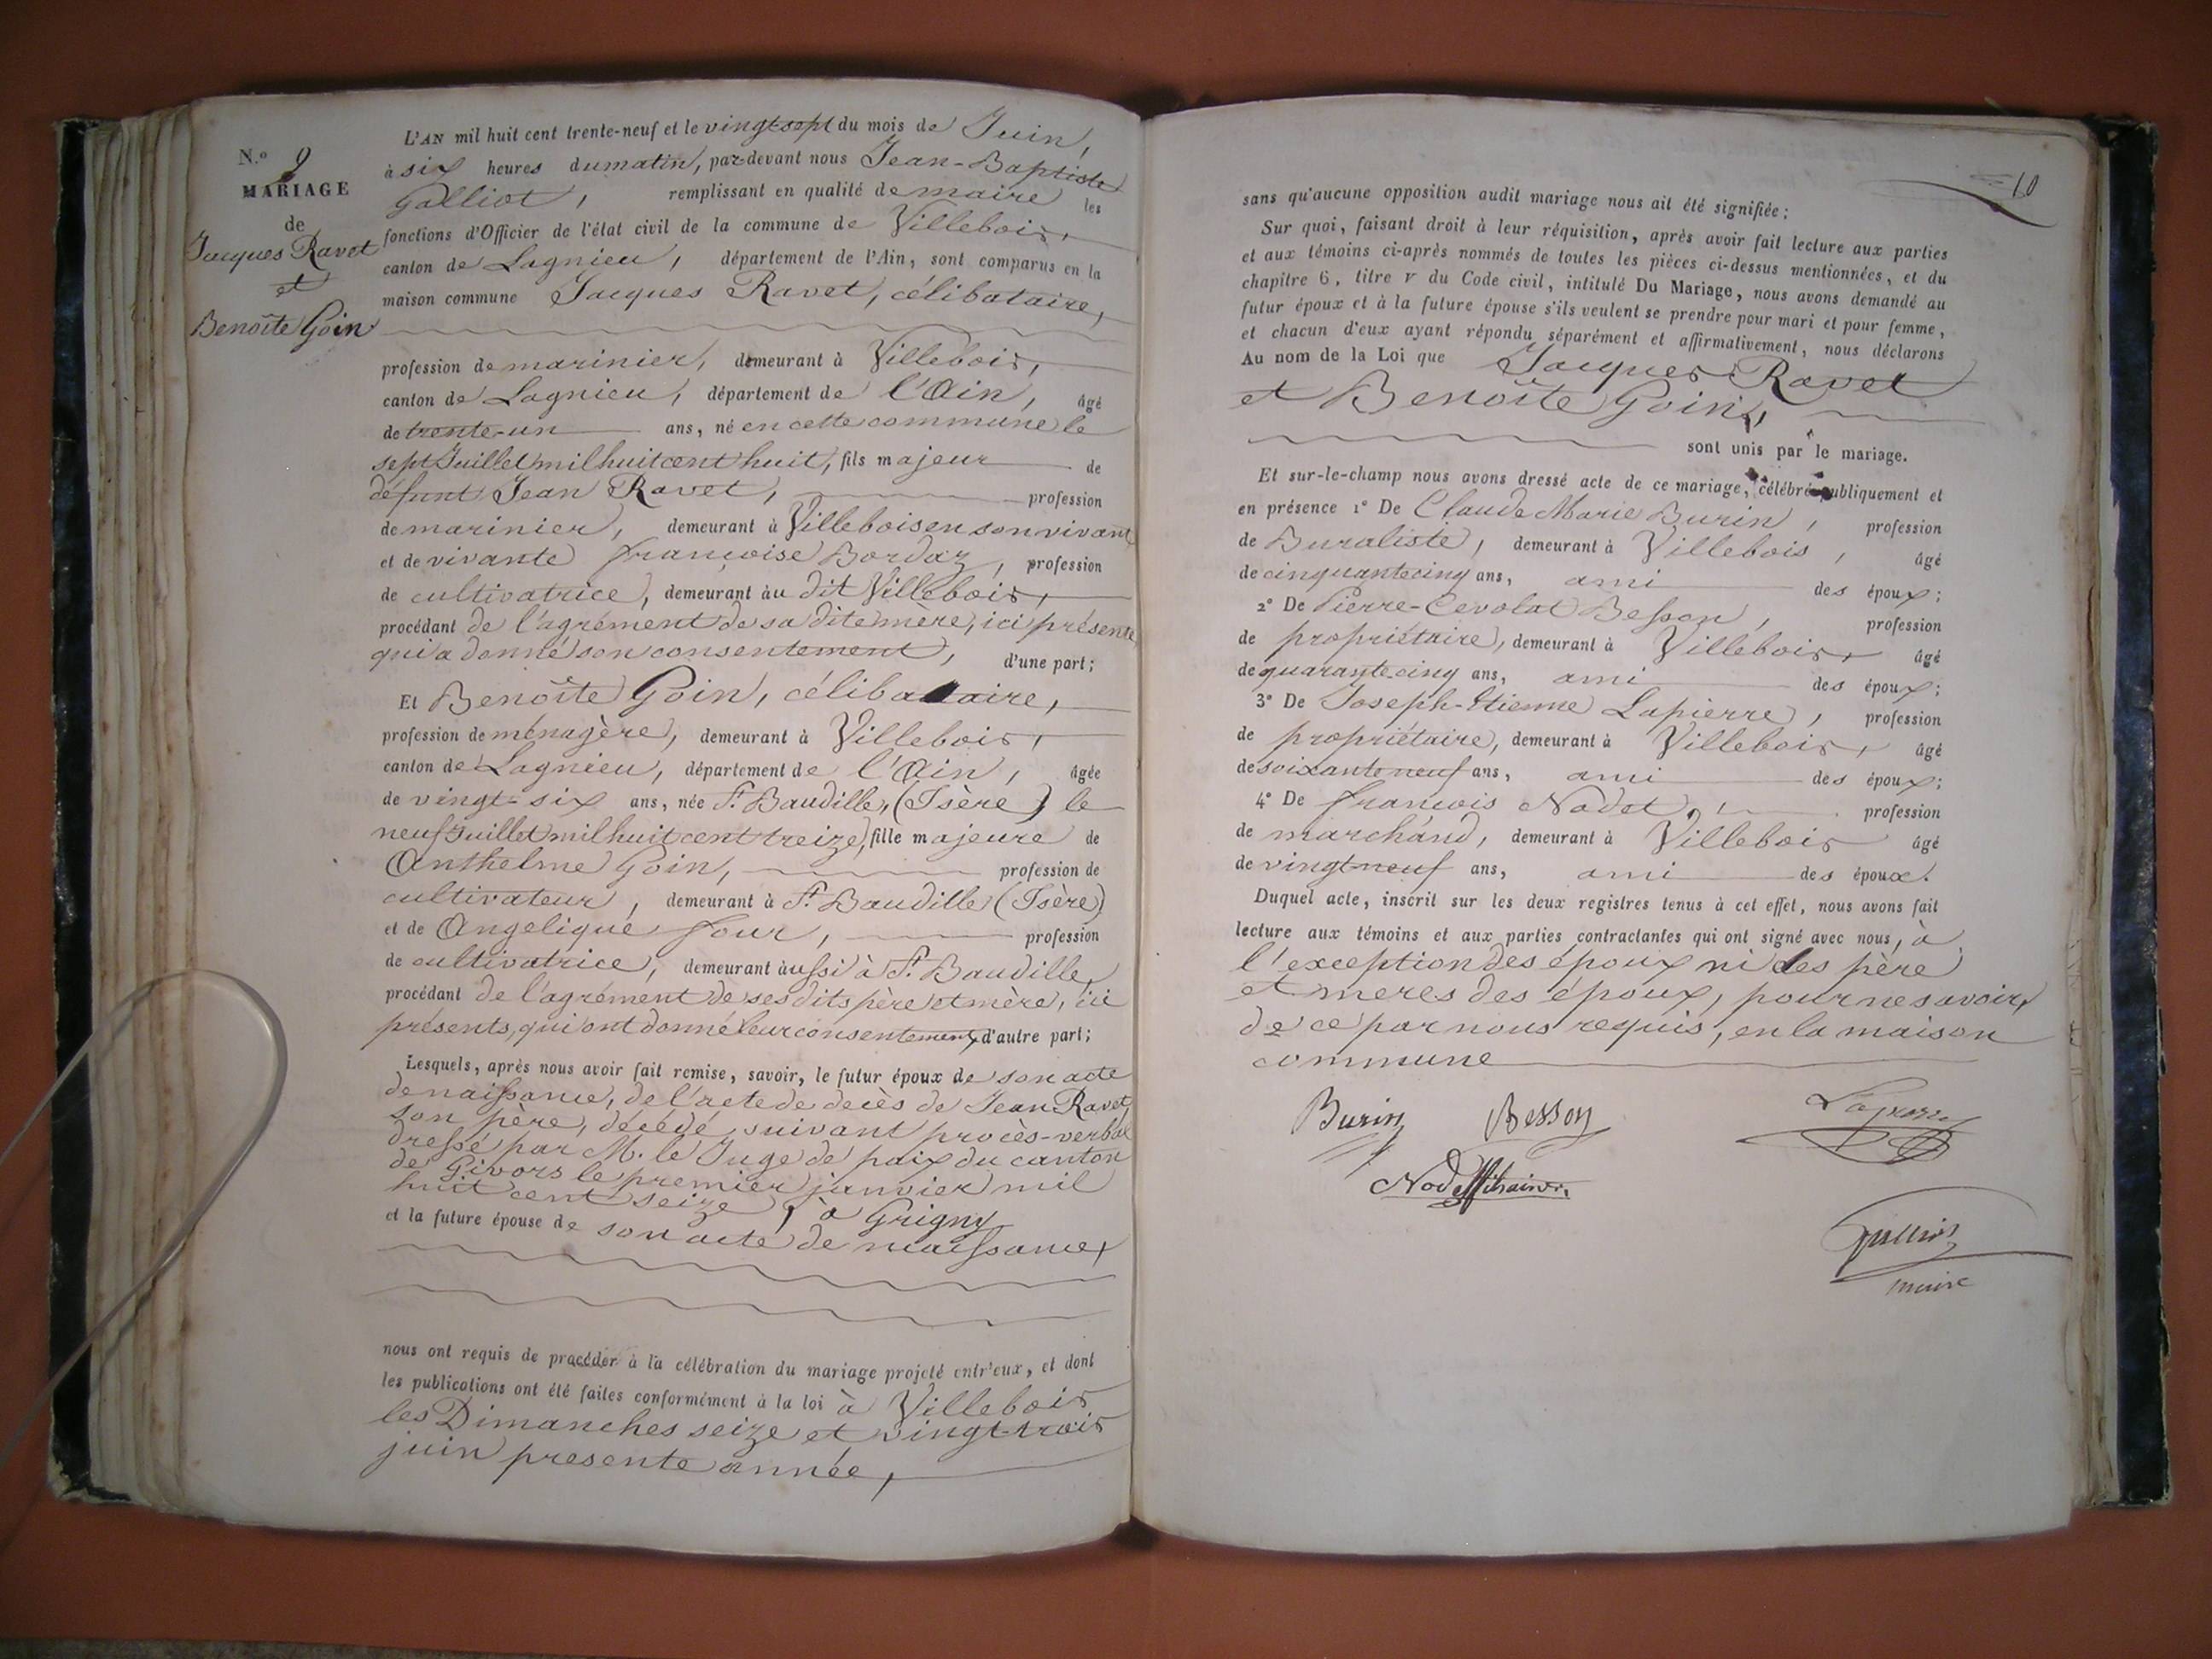 N.° 9
MARIAGE
de
Jacques Ravet
et
Benoîte Goin
L'AN mil huit cent trente-neuf et le vingt-sept du mois de Juin,
à six heures du matin, par-devant nous Jean-Baptiste
Galliot, remplissant en qualité de maire les
fonctions d'Officier de l'état civil de la commune de Villebois,
canton de Lagnieu, département de l'Ain, sont comparus en la
maison commune Jacques Ravet, célibataire,
profession de marinier, demeurant à Villebois,
canton de Lagnieu, département de l'Ain, âgé
de trente-un ans, né en cette commune le
sept Juillet mil huit cent huit, fils majeur de
défunt Jean Ravet, profession
de marinier, demeurant à Villebois en son vivant
et de vivante françoise Bordaz, profession
de cultivatrice, demeurant àu dit Villebois,
procédant de l'agrément de sa dite mère, ici présente
qui a donné son consentement, d'une part;
Et Benoîte Goin, célibataire,
profession de ménagère, demeurant à Villebois,
canton de Lagnieu, département de l'Ain, âgée
de vingt-six ans, née St. Baudille, (Isère) le
neuf Juillet mil huit cent treize, fille majeure de
Anthelme Goin, profession de
cultivateur, demeurant à St. Baudille (Isère)
et de Angelique four, profession
de cultivatrice, demeurant àussi à St. Baudille,
procédant de l'agrément de ses dits père et mère, ici
présents, qui ont donné leur consentement, d'autre part;
Lesquels, après nous avoir fait remise, savoir, le futur époux de son acte
de naissance, de l'acte de decès de Jean Ravet,
son père, décédé suivant procès-verbal
dressé par M. le Juge de paix du canton
de Givors le premier janvier mil
huit cent seize, à Grigny
et la future épouse de son acte de naissance,
nous ont requis de procéder à la célébration du mariage projeté entr'eux, et dont
les publications ont été faites conformément à la loi à Villebois
les Dimanches seize et vingt-trois
juin presente année,
10
sans qu'aucune opposition audit mariage nous ait été signifiée;
Sur quoi, faisant droit à leur réquisition, après avoir fait lecture aux parties
et aux témoins ci-après nommés de toutes les pièces ci-dessus mentionnées, et du
chapitre 6, titre V du Code civil, intitulé Du Mariage, nous avons demandé au
futur époux et à la future épouse s'ils veulent se prendre pour mari et pour femme,
et chacun d'eux ayant répondu séparément et affirmativement, nous déclarons
Au nom de la Loi que Jacques Ravet
et Benoîte Goin,
sont unis par le mariage.
Et sur-le-champ nous avons dressé acte de ce mariage, célébré publiquement et
en présence 1° De Claude Marie Burin, profession
de Buraliste, demeurant à Villebois, âgé
de cinquante cinq ans, ami des époux;
2° De Pierre-Cevolat Besson, profession
de propriétaire, demeurant à Villebois, âgé
de quarante-cinq ans, ami des époux;
3° De Joseph-Etienne Lapierre, profession
de propriétaire, demeurant à Villebois, âgé
de soixante neuf ans, ami des époux;
4° De francois Nodet, profession
de marchand, demeurant à Villebois âgé
de vingt-neuf ans, ami des époux.
Duquel acte, inscrit sur les deux registres tenus à cet effet, nous avons fait
lecture aux témoins et aux parties contractantes qui ont signé avec nous, à
l'exception des époux ni des père
et meres des époux, pour ne savoir,
de ce par nous requis, en la maison
commune
Burin Besson Lapierre
Galliot
maire